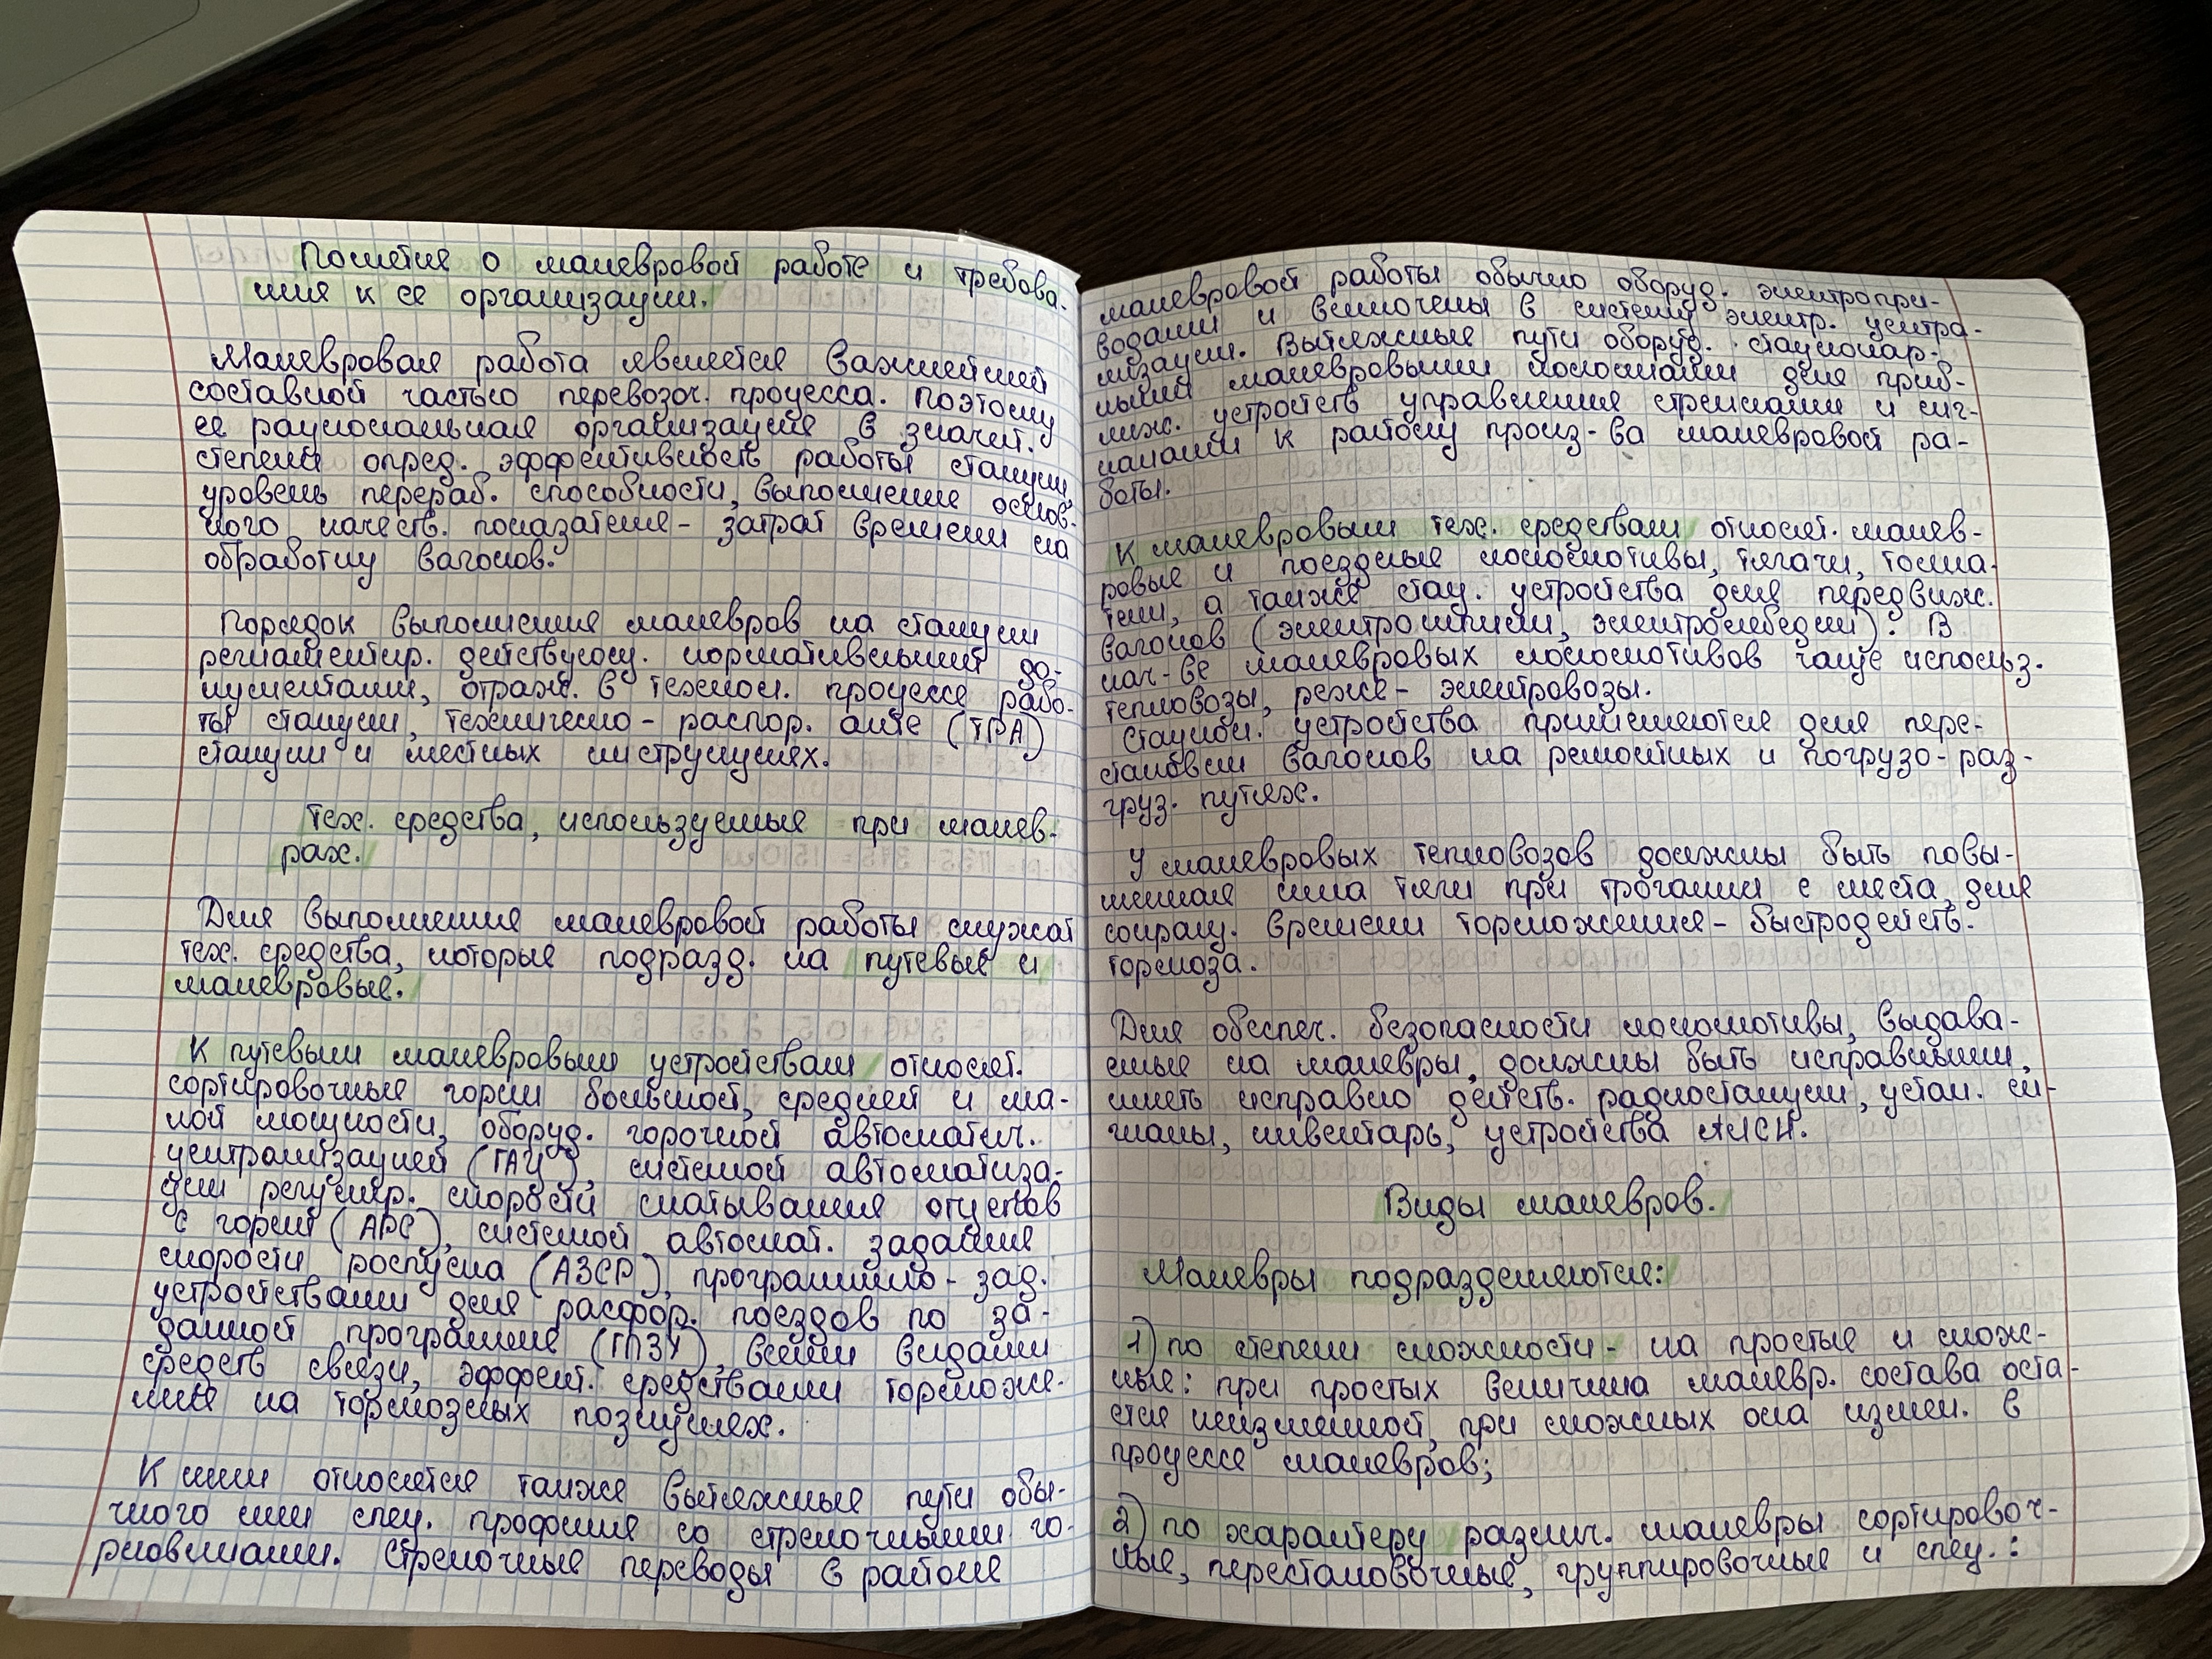 Понятие о маневровой работе и требова-
ния к ее организации.
Маневровая работа является важнейшей
составной частью перевозоч. процесса. Поэтому
ее рациональная организация в значит.
степени опред. эффективность работы станции,
уровень перераб. способности, выполнение основ-
ного качеств. показателя - затрат времени на
обработку вагонов.
Порядок выполнения маневров на станции
регламентир. действующ. нормативными до-
кументами, отраж. в технол. процессе рабо-
ты станции, техническо - распор. акте (ТРА)
станции и местных инструкциях.
Тех. средства, используемые при манев-
рах.
Для выполнения маневровой работы служат
тех. средства, которые подразд. на путевые и
маневровые.
К путевым маневровым устройствам относят.
сортировочные горки большой, средней и ма-
лой мощности, оборуд. горочной автоматич.
централизацией (ГАЦ), системой автоматиза-
ции регулир. скорости скатывания отцепов
с горки (АРС), системой автомат. задания
скорости роспуска (АЗСР), программно - зад.
устройствами для расфор. поездов по за-
данной программе (ГПЗУ), всеми видами
средств связи, эффект. средствами торможе-
ния на тормозных позициях.
К ним относятся также вытяжные пути обы-
чного или спец. профиля со стрелочными го-
рловинами. Стрелочные переводы в районе
маневровой работы обычно оборуд. электропри-
водами и включены в систему электр. центра-
лизации. Вытяжные пути оборуд. стационар-
ными маневровыми колонками для приб-
лиж. устройств управления стрелками и сиг-
налами к району произ-ва маневровой ра-
боты.
К маневровым тех. средствам относят. манев-
ровые и поездные локомотивы, тягачи, толка-
тели, а также стац. устройства для передвиж.
вагонов (электрошпили, электролебедки). В
кач-ве маневровых локомотивов чаще использ.
тепловозы, реже - электровозы.
Стацион. устройства применяются для пере-
становки вагонов на ремонтных и погрузо - раз-
груз. путях.
У маневровых тепловозов должны быть повы-
шенная сила тяги при трогании с места, для
сокращ. времени торможения - быстродейств.
тормоза.
Для обеспеч. безопасности локомотивы, выдава-
емые на маневры, должны быть исправными,
иметь исправно действ. радиостанции, устан. си-
гналы, инвентарь, устройства АЛСН.
Виды маневров.
Маневры подразделяются:
1) по степени сложности - на простые и слож-
ные: при простых величина маневр. состава оста-
ется неизменной, при сложных она измен. в
процессе маневров;
2) по характеру различ. маневры сортировоч-
ные, перестановочные, группировочные и спец.: